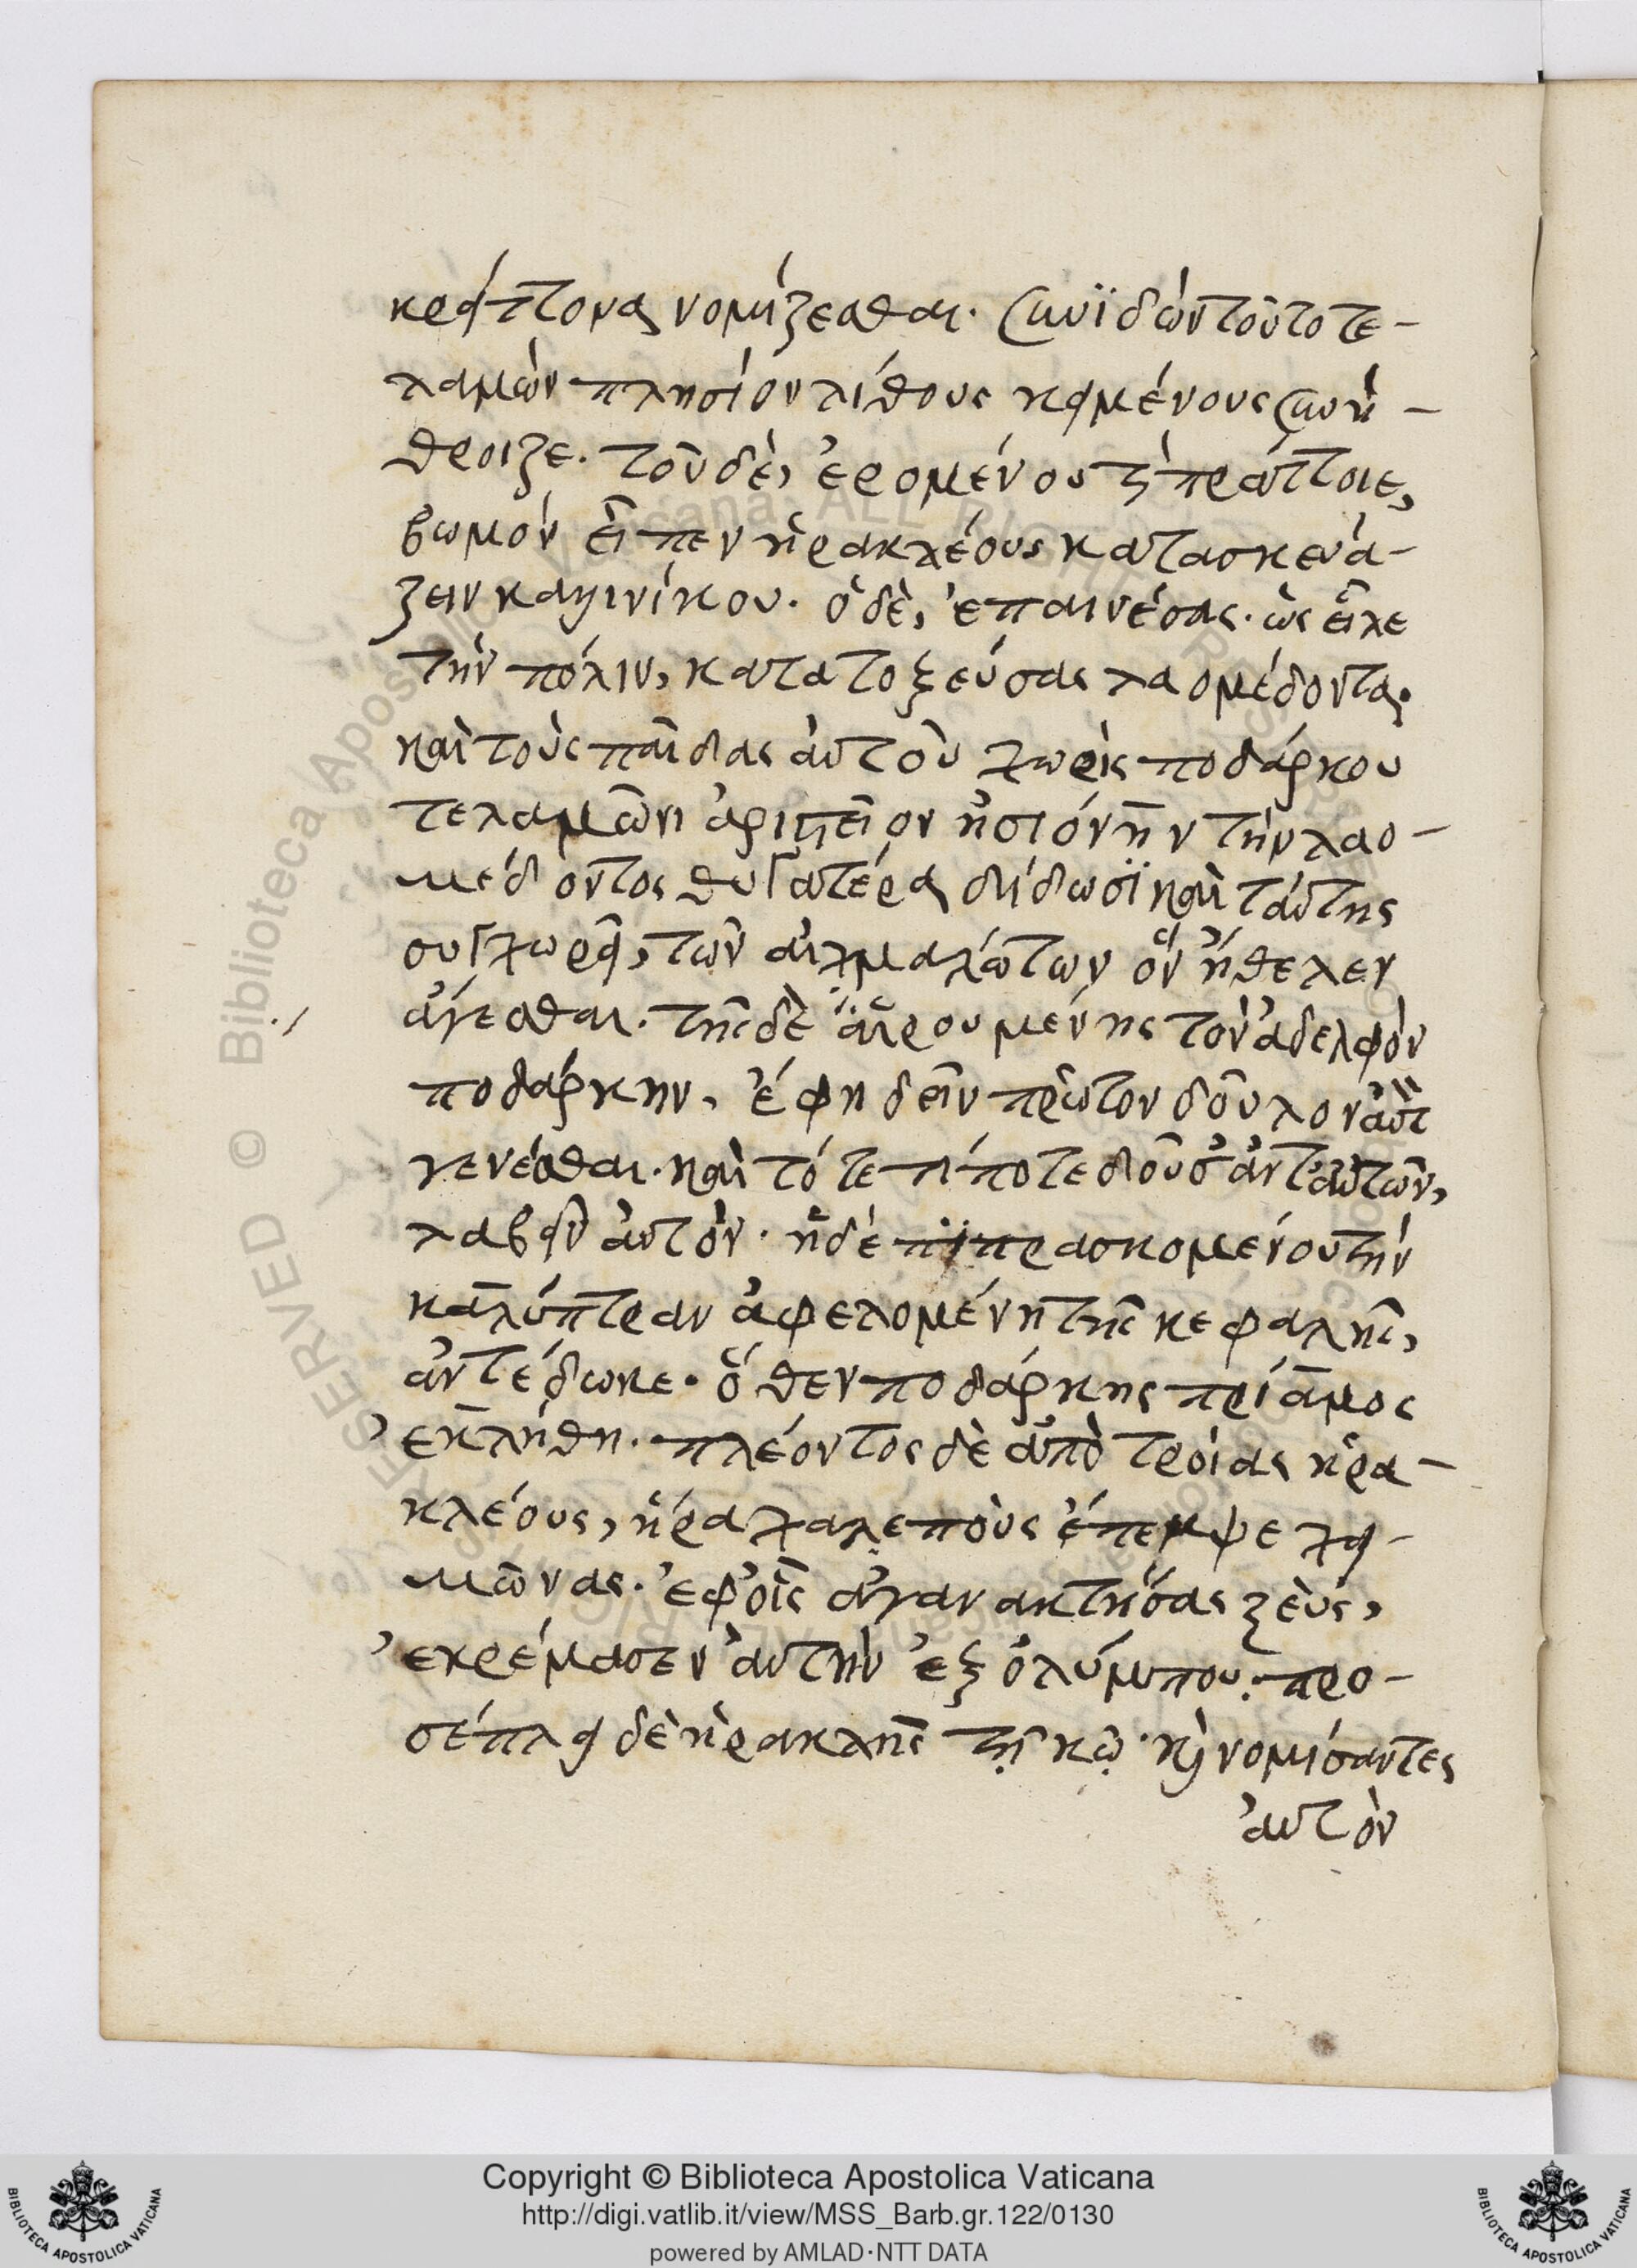 κρείττονα νομίζεσθαι. συνϊδὼν τοῦτο τε-
λαμὼν πλησίον λίθους κειμένους συνή-
θροιζε. τοῦ δὲ, ἐρομένου τί πράττοιε,
βωμὸν εἶπεν ἡρακλέους κατασκευά-
ζειν καλλινίκου. ὁ δὲ, ἐπαινέσας. ὡς εἷλε
τὴν πόλιν, κατατοξεύσας λαομέδοντα.
καὶ τοὺς παῖδας αὐτοῦ χωρὶς ποδάρκου
τελαμῶνι ἀριστεῖον ἡσιόνην τὴν λαο-
μέδοντος θυγατέρα δίδωσϊ καὶ ταύτης
συγχωρεῖ, τῶν αἰχμαλώτων ὃν ἤθελεν
ἄγεσθαι. τῆς δὲ αἱρουμένης τὸν ἀδελφὸν
ποδάρκην, ἔφη δεῖν πρῶτον δοῦλον αὐτ
γενέσθαι. καὶ τότε τί ποτε δοῦσ' ἀντ' αὐτῶν,
λαβεῖν αὐτόν. ἡ δὲ πϊπρασκομένου τὴν
καλύπτραν ἀφελομένη τῆς κεφαλῆς,
ἀντέδωκε. ὅθεν ποδάρκης πρίαμος
ἐκλήθη. πλέοντος δὲ ἀπὸ τροίας ἡρα-
κλέους, ἥρα χαλεποὺς ἔπεμψε χει-
μῶνας. ἐφ' οἷς ἀγανακτήσας ζεὺς,
ἐκρέμασεν αὐτὴν ἐξ ὀλύμπου. προ-
σέπλει δὲ ἡρακλῆς τῇ κῷ. καὶ νομίσαντες
αὐτὸν
Copyright © Biblioteca Apostolica Vaticana
http://digi.vatlib.it/view/MSS_Barb.gr.122/0130
powered by AMLAD·NTT DATA
BIBLIOTECA APOSTOLICA VATICANA
BIBLIOTECA APOSTOLICA VATICANA